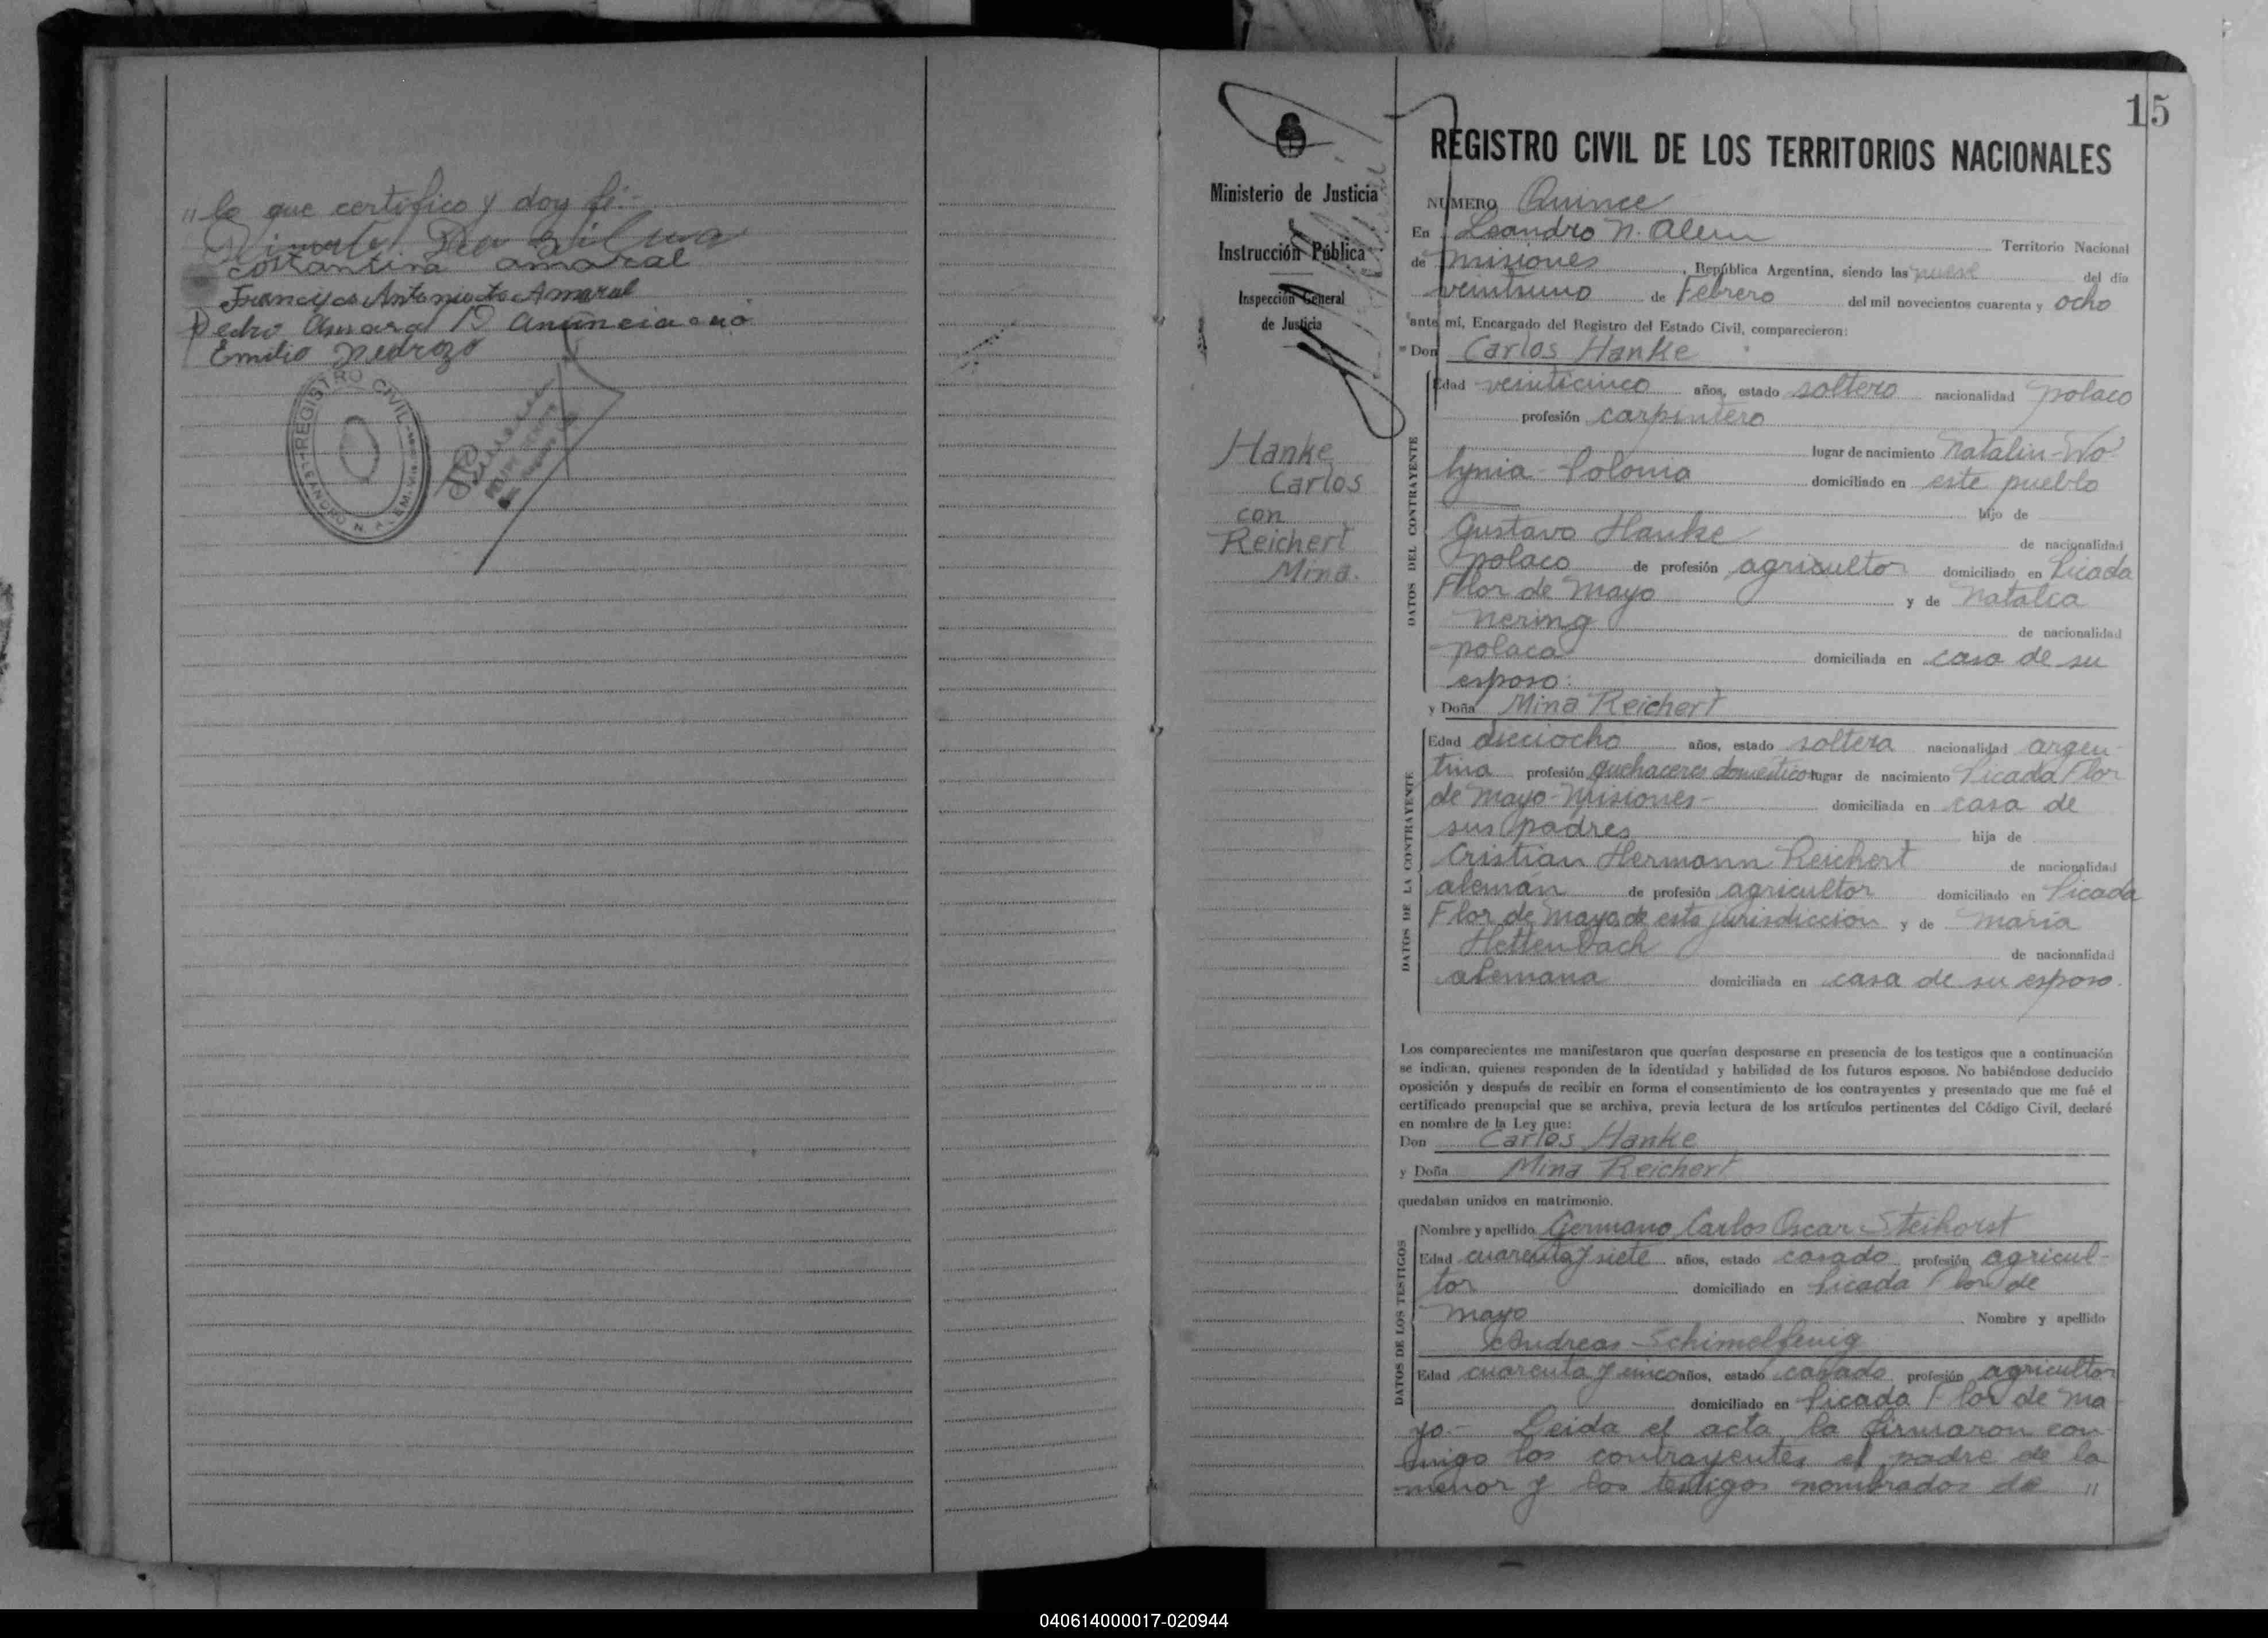 " lo que certifico y doy fé.-
Da Silva
costantina amaral
Francisco Antonio do Amaral
Pedro Amaral D Anunciacao
Emilio Pedrozo
REGISTRO CIVIL
LEANDRO N. ALEM
15
Ministerio de Justicia
e
Instrucción Pública
Inspección General
de Justicia
Hanke
Carlos
con
Reichert
Mina.
REGISTRO CIVIL DE LOS TERRITORIOS NACIONALES
NUMERO Quince
En Leandro N. Alem Territorio Nacional
de Misiones, República Argentina, siendo las nueve del día
veintiuno de Febrero del mil novecientos cuarenta y ocho
ante mí, Encargado del Registro del Estado Civil, comparecieron:
Don Carlos Hanke
DATOS DEL CONTRAYENTE
Edad veinticinco años, estado soltero nacionalidad polaco
profesión carpintero
lugar de nacimiento Natalin-Wo
lynia-Polonia domiciliado en este pueblo
hijo de
Gustavo Hanke de nacionalidad
polaco de profesión agricultor domiciliado en Picada
Flor de Mayo y de Natalia
Nering de nacionalidad
polaca domiciliada en casa de su
esposo.
y Doña Mina Reichert
DATOS DE LA CONTRAYENTE
Edad dieciocho años, estado soltera nacionalidad argen-
tina profesión quehaceres domésticos lugar de nacimiento Picada Flor
de Mayo-Misiones- domiciliada en casa de
sus padres hija de
Cristian Hermann Reichert de nacionalidad
alemán de profesión agricultor domiciliado en Picada
Flor de Mayo de esta jurisdiccion y de Maria
Hettenbach de nacionalidad
alemana domiciliada en casa de su esposo.
Los comparecientes me manifestaron que querían desposarse en presencia de los testigos que a continuación
se indican, quienes responden de la identidad y habilidad de los futuros esposos. No habiéndose deducido
oposición y después de recibir en forma el consentimiento de los contrayentes y presentado que me fué el
certificado prenupcial que se archiva, previa lectura de los artículos pertinentes del Código Civil, declaré
en nombre de la Ley que:
Don Carlos Hanke
y Doña Mina Reichert
quedaban unidos en matrimonio.
DATOS DE LOS TESTIGOS
Nombre y apellido Germano Carlos Oscar Steihorst
Edad cuarenta y siete años, estado casado profesión agricul-
tor domiciliado en Picada Flor de
Mayo Nombre y apellido
Andreas Schimelfenig
Edad cuarenta y cinco años, estado casado profesión agricultor
domiciliado en Picada Flor de Ma
yo.- Leida el acta la firmaron con
migo los contrayentes el padre de la
menor y los testigos nombrados de "
040614000017-020944